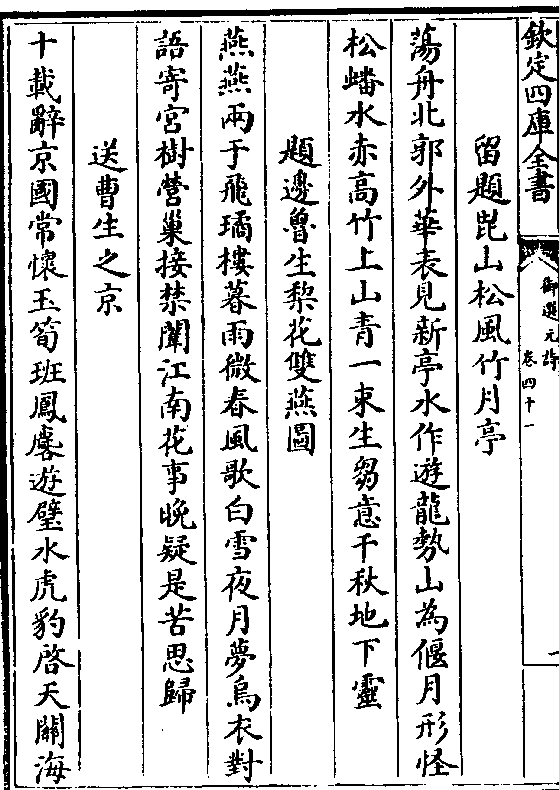 欽定四庫全書
御選元詩
卷四十一
留題毘山松風竹月亭
蕩舟北郭外華表見新亭水作遊龍勢山為偃月形怪
松蟠水赤高竹上山青一束生芻意千秋地下靈
題邊魯生梨花雙燕圖
燕燕兩于飛璚樓暮雨微春風歌白雪夜月夢烏衣對
語寄宮樹營巢接禁闈江南花事晚疑是苦思歸
送曹生之京
十載辭京國常懷玉筍班鳳麐遊璧水虎豹啓天關海